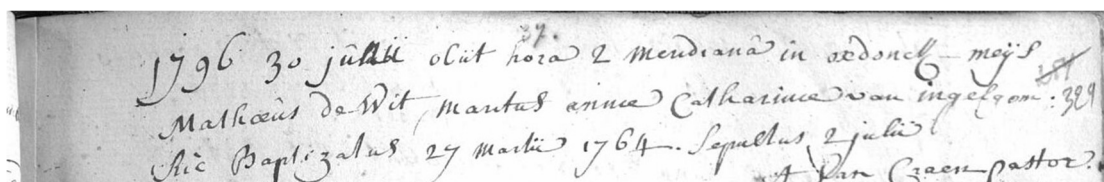 37.
1796 30 junii obiit hora 2 meridiana in oedonck - meijs
Mathæus de Wit, maritus annæ Catharinæ van ingelgom: 329
hic Baptizatus 27 martii 1764. Sepultus 2 julii
Van Craen pastor.